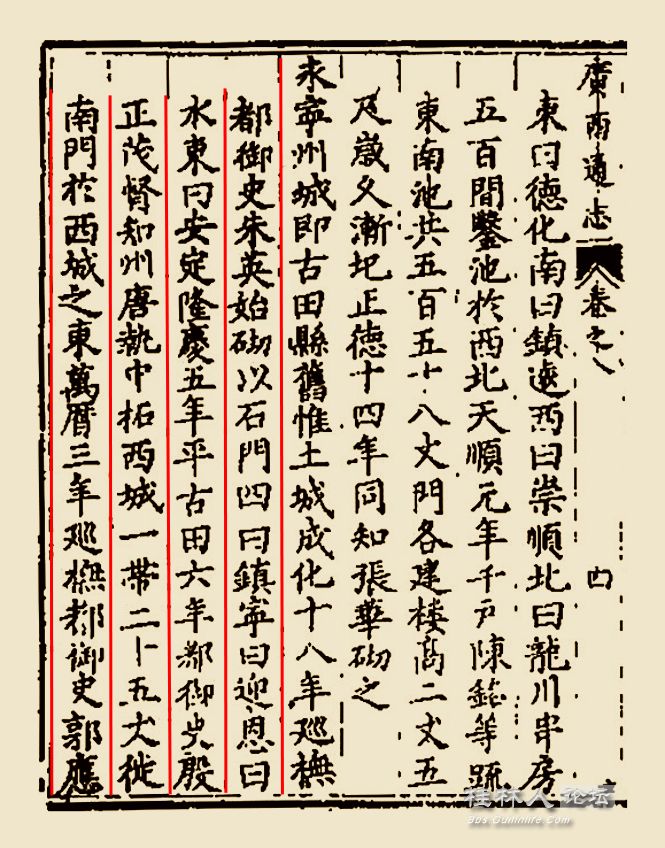 廣西通志
卷之八
四
東曰德化南曰鎮遠西曰崇順北曰龍川串房
五百間鑿池於西北天順元年千戶陳銘等疏
東南池共五百五十八丈門各建楼高二丈五
尺歲久漸圮正德十四年同知張華砌之
永寧州城即古田縣舊惟土城成化十八年廵撫
都御史朱英始砌以石門四曰鎮寧曰迎恩曰
水東曰安定隆慶五年平古田六年都御史殷
正茂督知州唐執中拓西城一帶二十五丈徙
南門於西城之東萬曆三年廵撫都御史郭應
桂林人论坛
bbs.Guilinlife.com